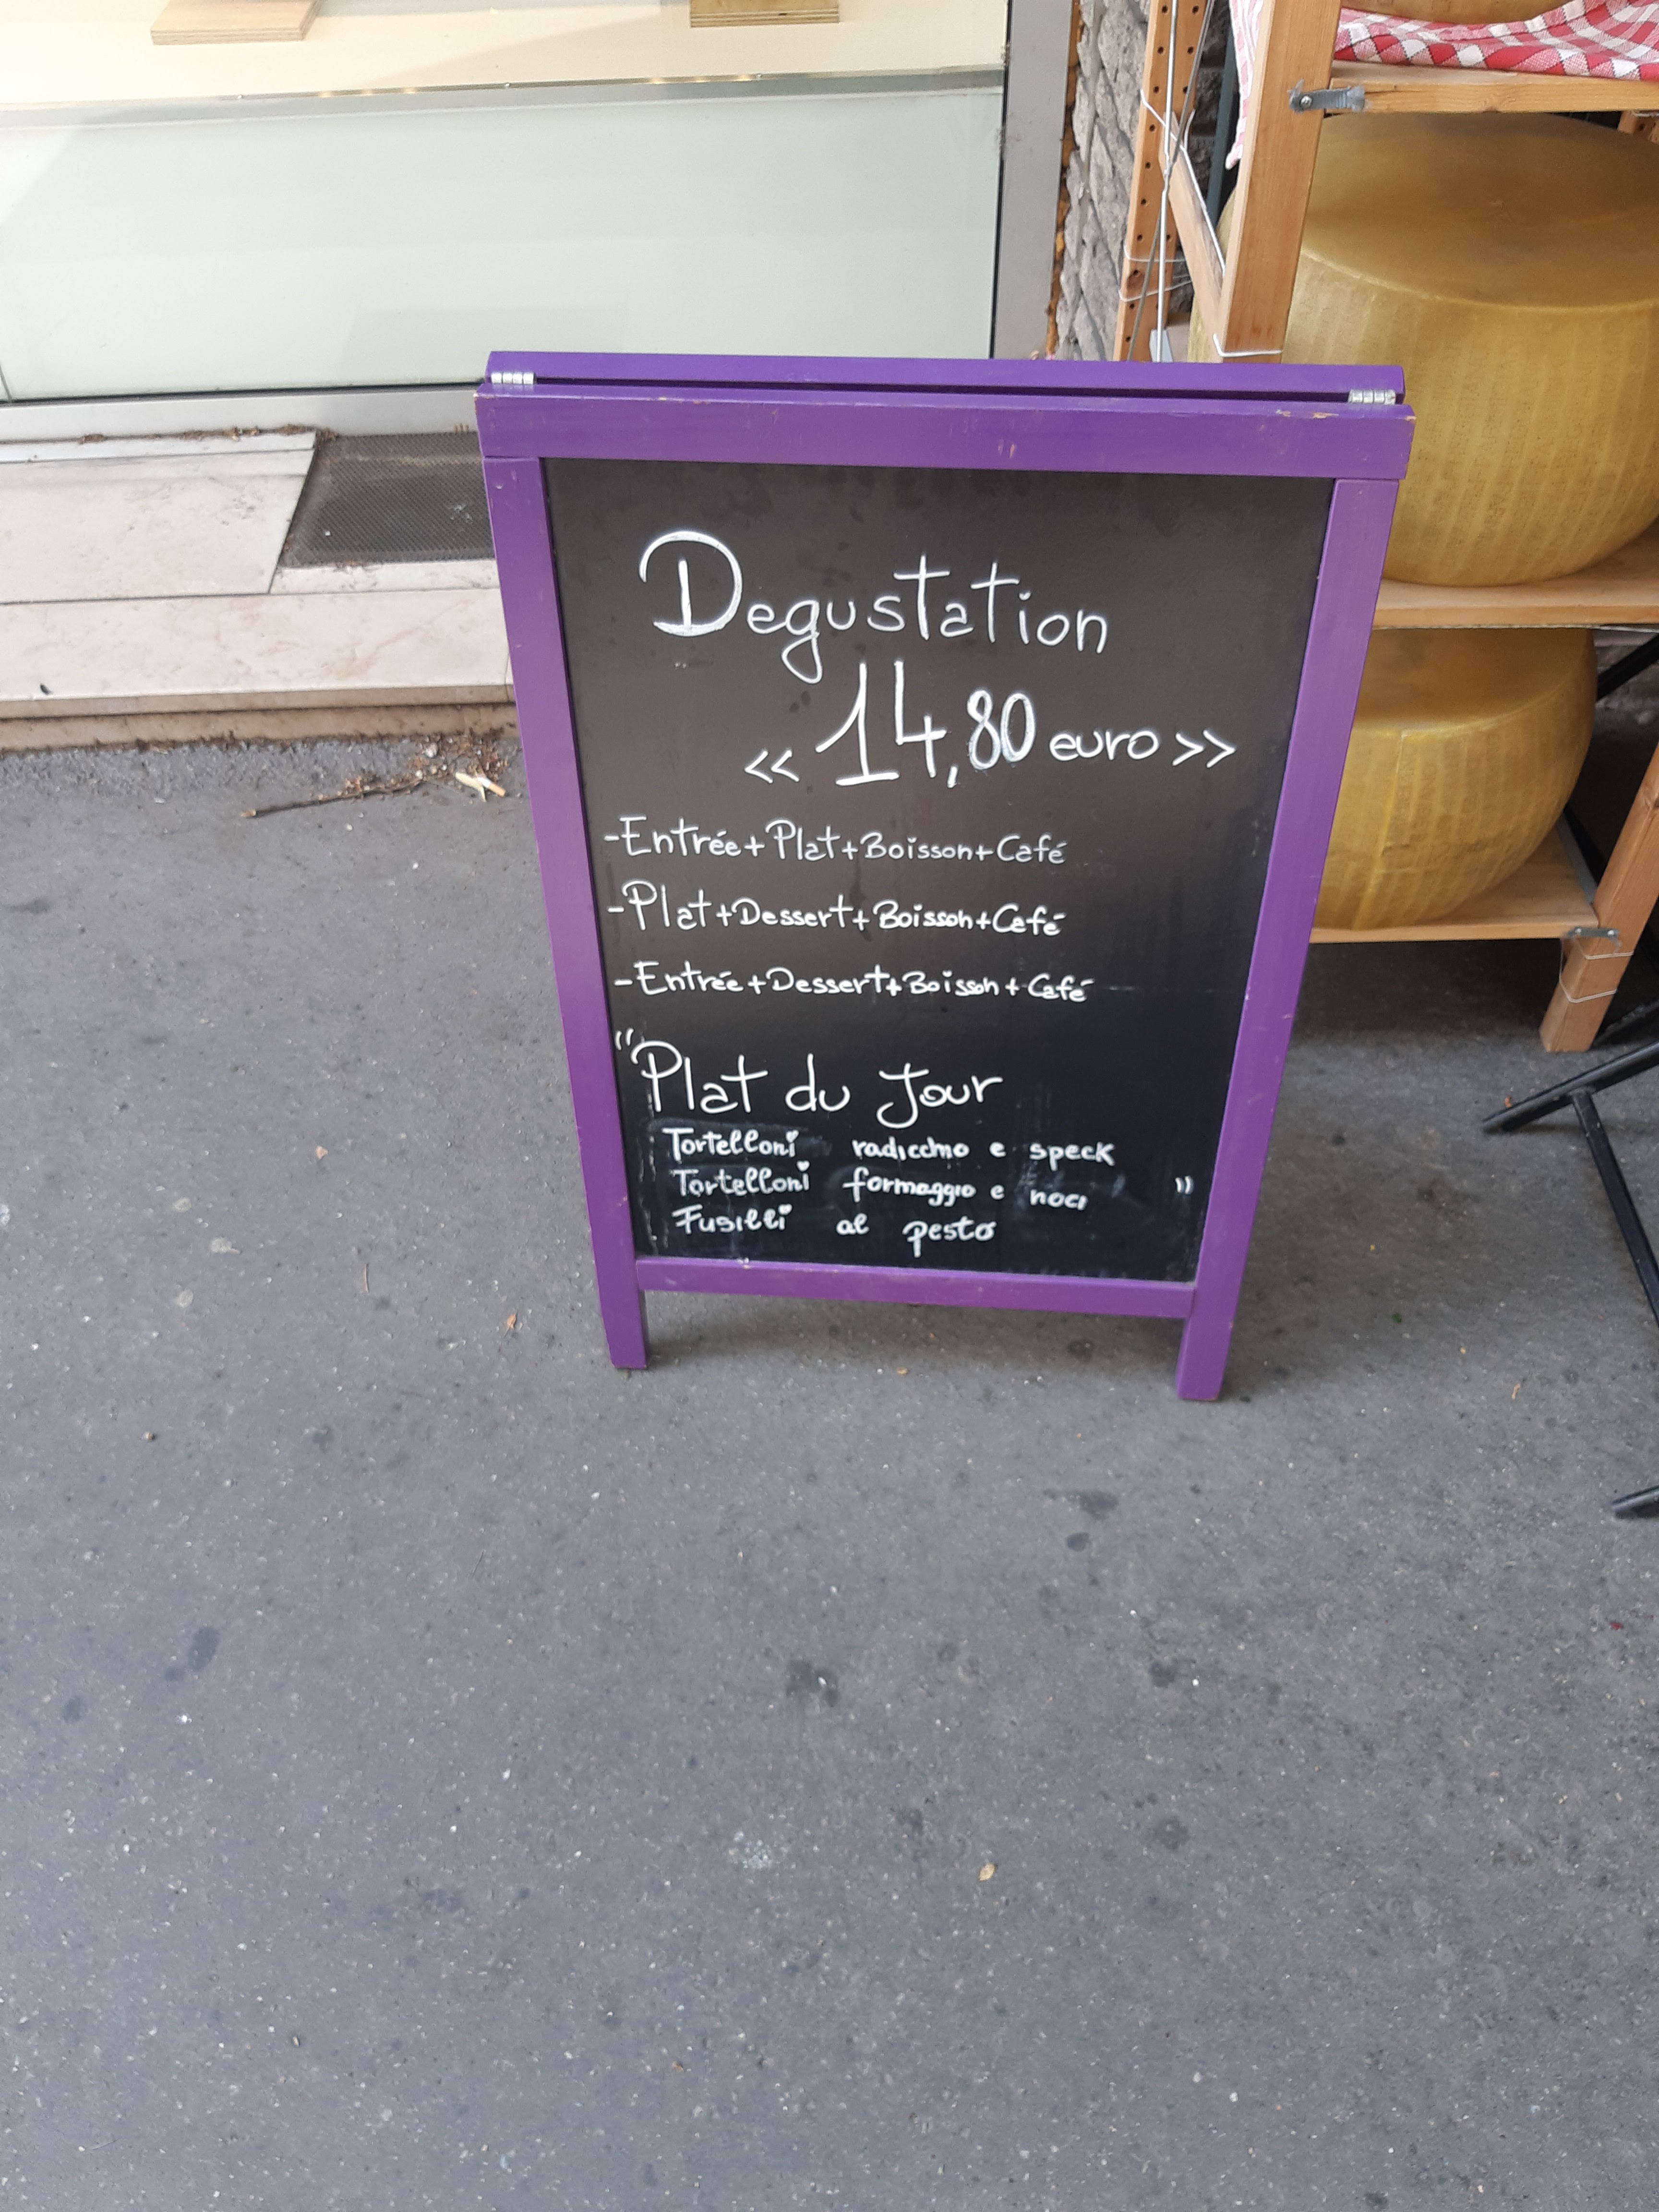 Degustation
<< 14,80 euro >>
-Entrée+Plat+Boisson+Café
-Plat+Dessert+Boisson+Café
-Entrée+Dessert+Boisson+Café
"Plat du Jour
Tortelloni radicchio e speck
Tortelloni formaggio e noci "
Fusilli al pesto